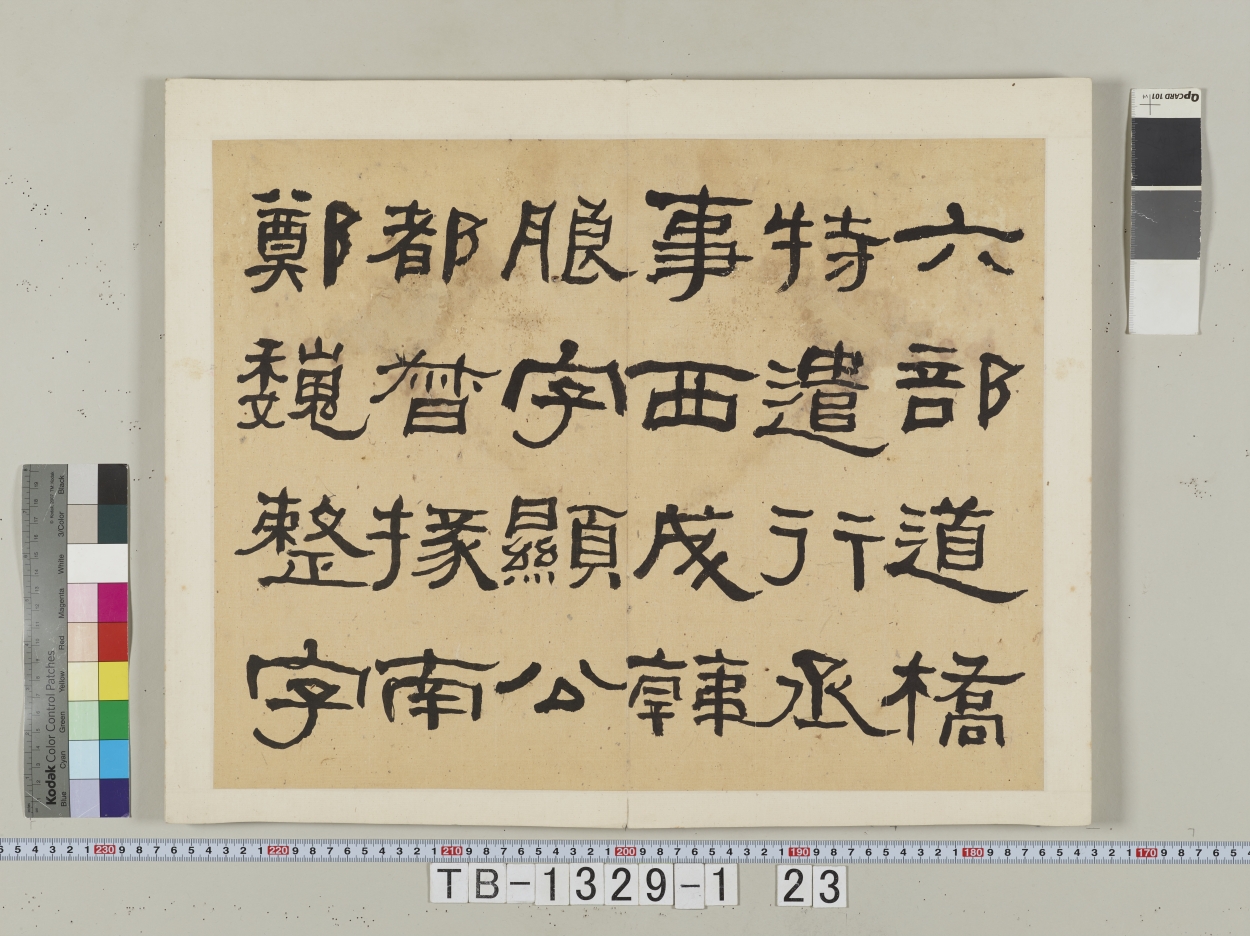 六部道橋
特遣行丞
事西成韓
朖字顯公
都督掾南
鄭魏整字
TB-1329-1 23
QPCARD 101
Kodak Color Control Patches
Blue Cyan Green Yellow Red Magenta White 3/Color Black
230 220 210 200 190 180 170